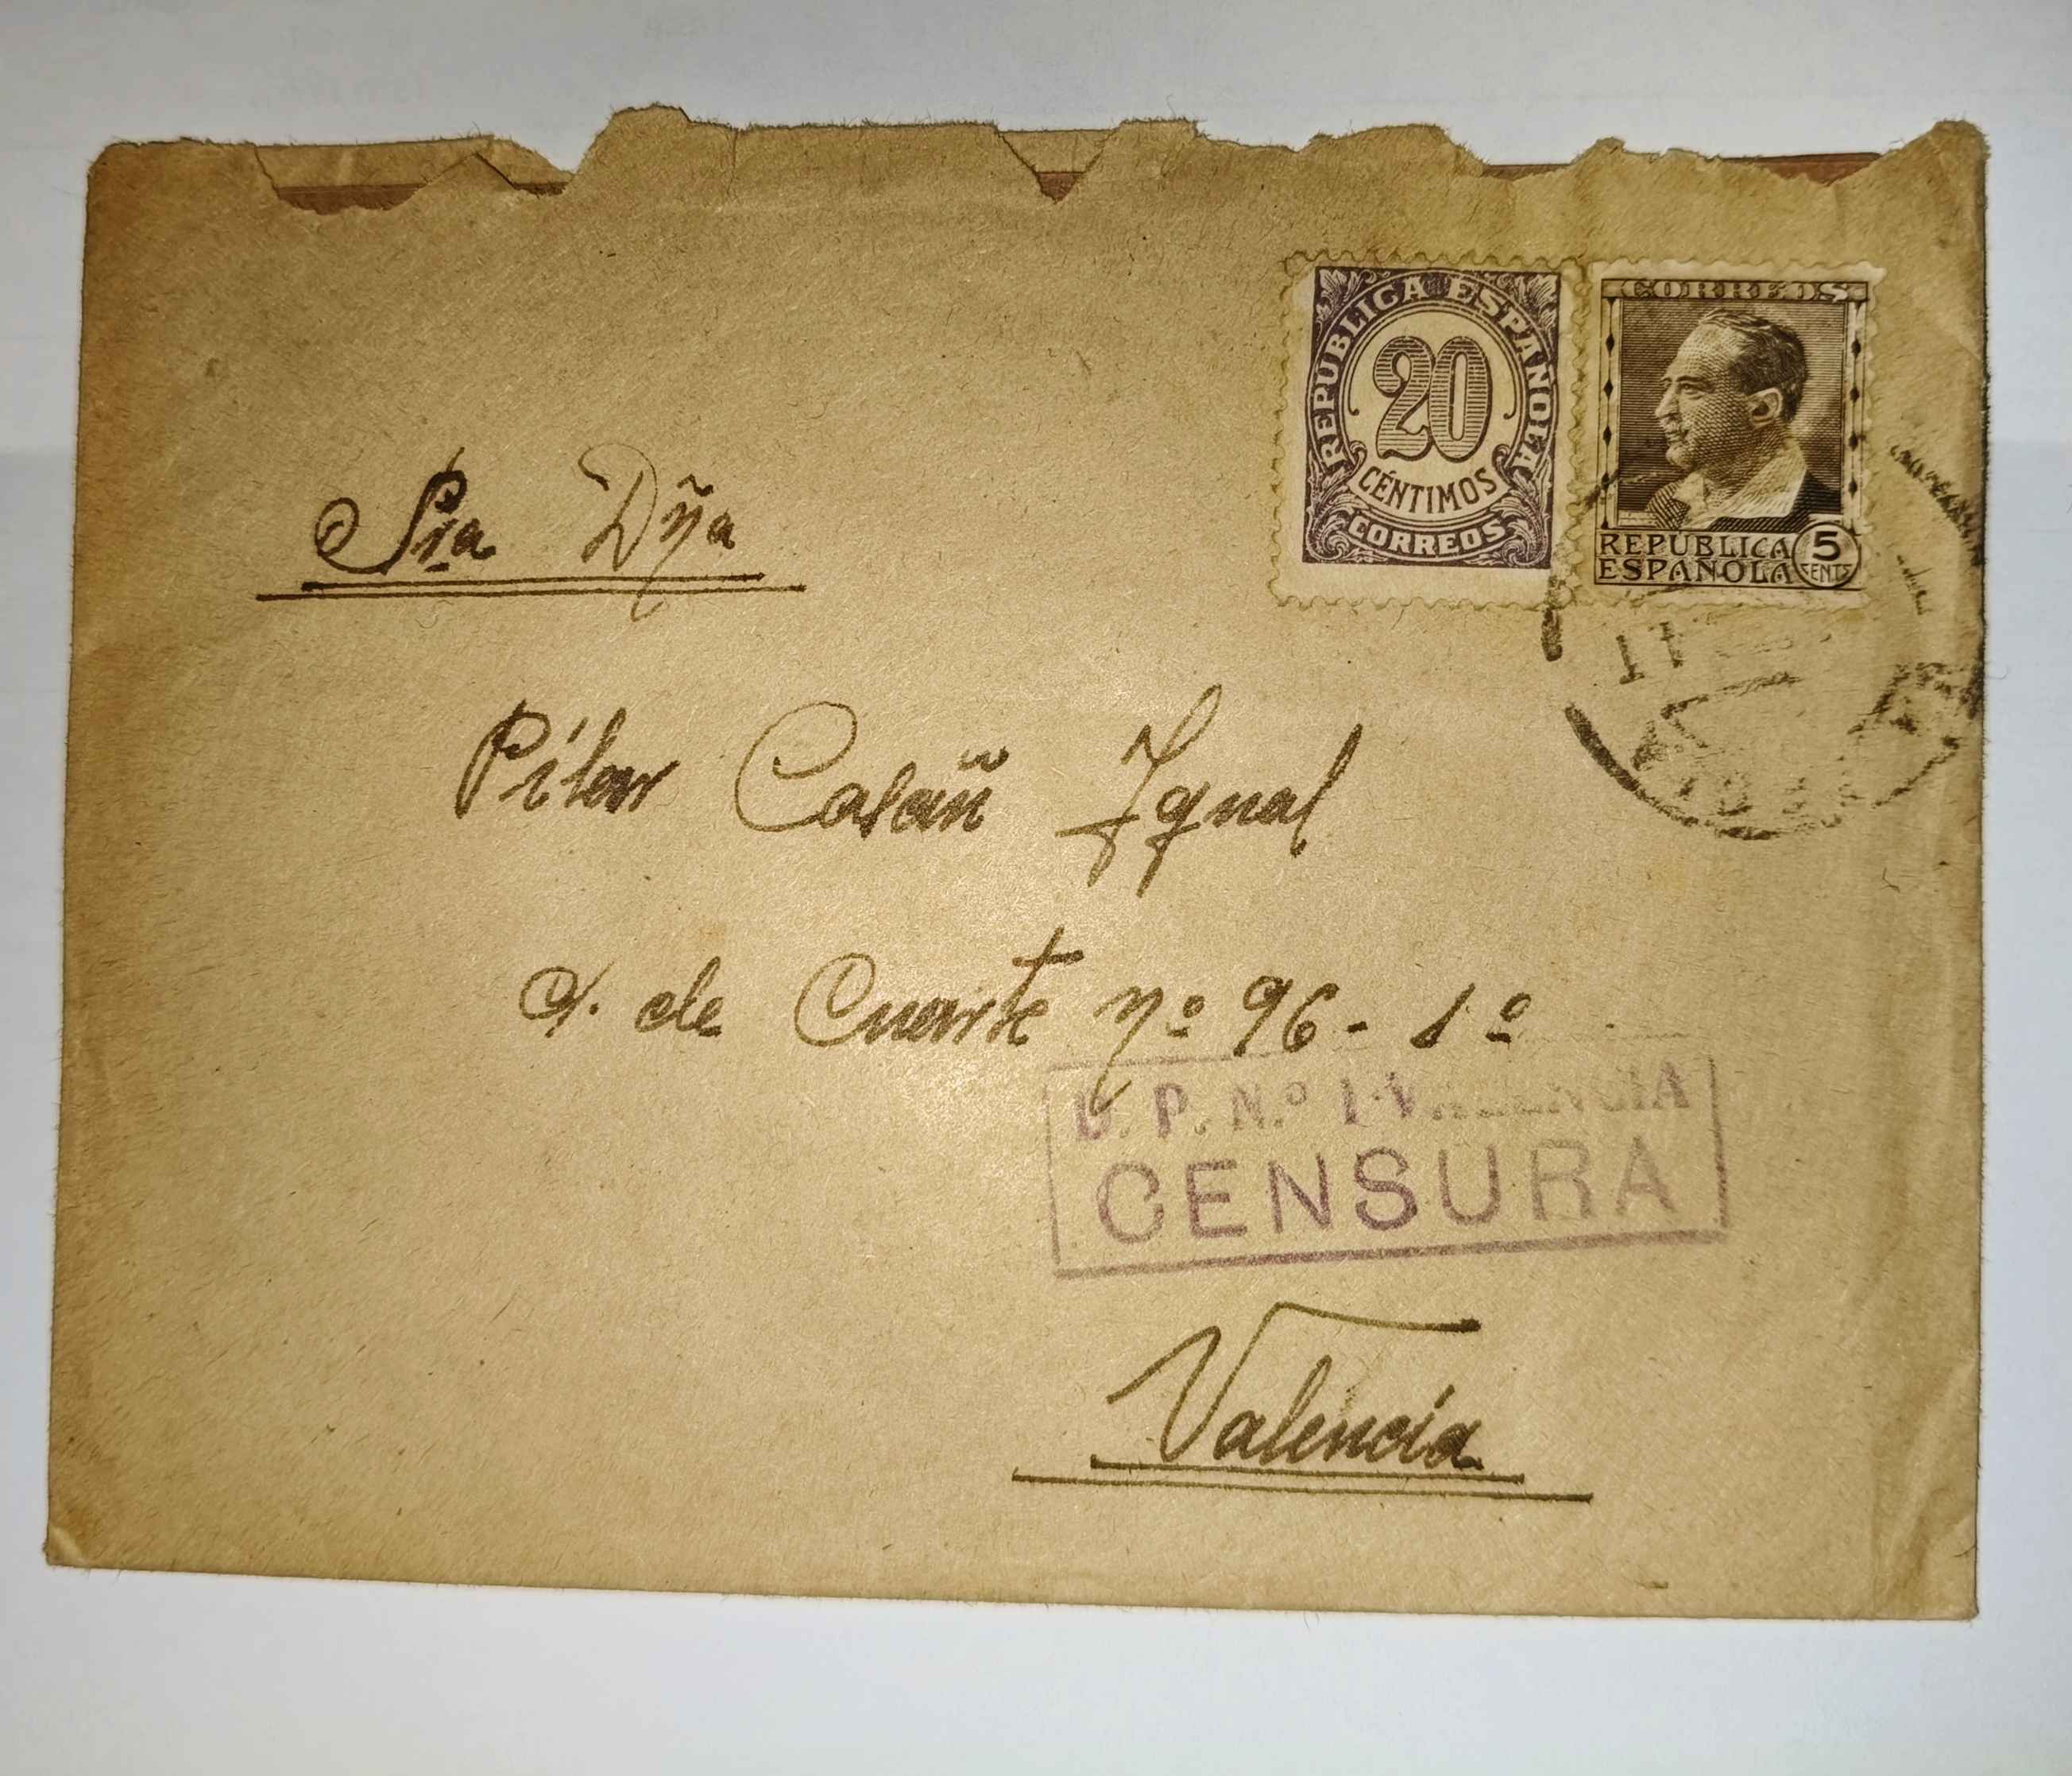 REPÚBLICA ESPAÑOLA
20
CÉNTIMOS
CORREOS
CORREOS
REPUBLICA 5
ESPAÑOLA CENTS
Sra Dña
Pilar Igual
C. de Cuarte nº 96 - 1º
P. N.º 1 VALENCIA
CENSURA
Valencia